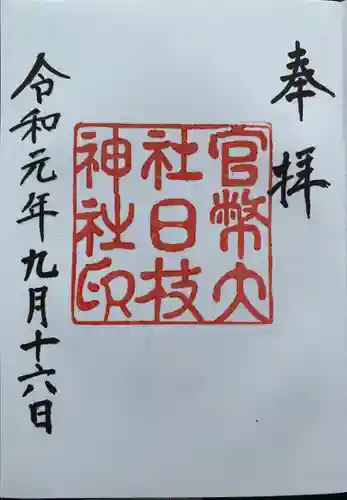 奉拝
官幣大
社日枝
神社印
令和元年九月十六日